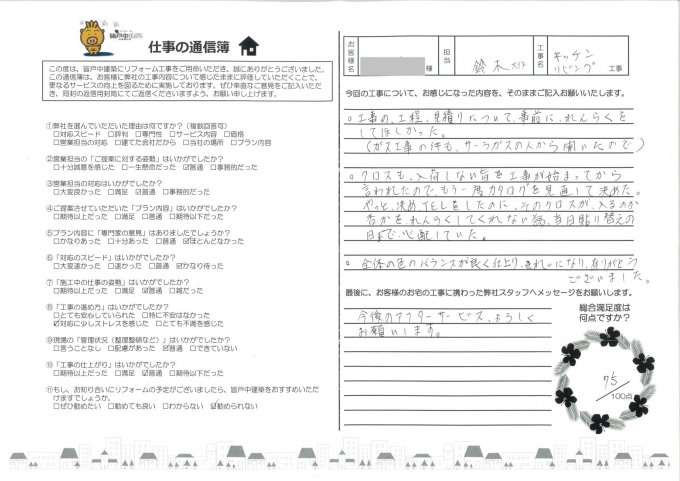 皆戸中建築
仕事の通信簿
この度は、皆戸中建築にリフォーム工事をご用命いただき、誠にありがとうございました。
この通信簿は、お客様に弊社の工事内容について感じたままに評価していただくことで、
更なるサービスの向上を図るために実施しております。ぜひ率直なご意見をご記入いただ
き、同封の返信用封筒にてご返信くださいますよう、お願い申し上げます。
①弊社を選んでいただいた理由は何ですか?(複数回答可)
□対応スピード □評判 □専門性 □サービス内容 □価格
□営業担当の対応 □建てた会社だから □当社の場所 □プラン内容
②営業担当の「ご提案に対する姿勢」はいかがでしたか?
□十分誠意を感じた □一生懸命だった ☑普通 □事務的だった
③営業担当の対応はいかがでしたか?
□大変良かった □満足 ☑普通 □事務的だった
④ご提案させていただいた「プラン内容」はいかがでしたか?
□期待以上だった □満足 ☑普通 □期待以下だった
⑤プラン内容に「専門家の意見」はありましたでしょうか?
□かなりあった □十分あった □普通 ☑ほとんどなかった
⑥「対応のスピード」はいかがでしたか?
□大変速かった □速かった □普通 ☑かなり待った
⑦「施工中の仕事の姿勢」はいかがでしたか?
□期待以上だった □満足 ☑普通 □雑だった
⑧「工事の進め方」はいかがでしたか?
□とても安心していられた □特に不安はなかった
☑対応に少しストレスを感じた □とても不満を感じた
⑨現場の「管理状況(整理整頓など)」はいかがでしたか?
□言うことなし □配慮があった ☑普通 □できていない
⑩「工事の仕上がり」はいかがでしたか?
□期待以上だった □満足 ☑普通 □期待以下だった
⑪もし、お知り合いにリフォームの予定がございましたら、皆戸中建築をおすすめいただ
けますでしょうか?
□ぜひ勧めたい □勧めても良い □わからない ☑勧められない
お客様名 様 担当 鈴木 工事名 キッチン リビング 工事
今回の工事について、お感じになった内容を、そのままご記入お願いいたします。
○工事の、工程、見積りについて、事前に、れんらくを
してほしかった。
(ガス工事の件も、サーラガスの人から聞いたので)
○クロスも、入荷しない旨を工事が始まってから
言われたのでもう一度カタログを見直して決めた。
やっと、決めTELをしたのに、そのクロスが、入るのか
否かを、れんらくしてくれない為、当日貼り替えの
日まで、心配していた。
○全体の色のバランスが良く仕上り、きれいになり、ありがとう
ございました。
最後に、お客様のお宅の工事に携わった弊社スタッフへメッセージをお願いします。
今後のアフターサービス、よろしく
お願いします。
総合満足度は
何点ですか?
75
/100点